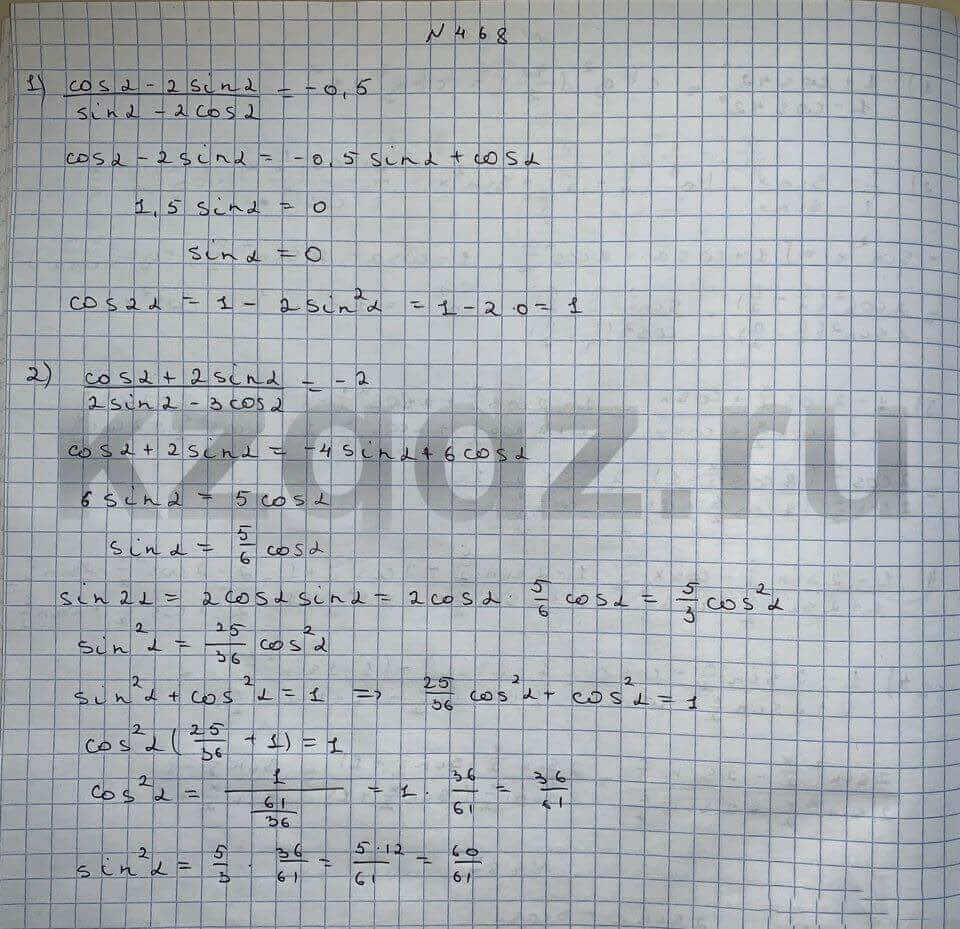 N 468
1) (cosα - 2sinα)/(sinα - 2cosα) = -0,5
cosα - 2sinα = -0,5sinα + cosα
1,5 sinα = 0
sinα = 0
cos2α = 1 - 2sin²α = 1 - 2·0 = 1
2) (cosα + 2sinα)/(2sinα - 3cosα) = -2
cosα + 2sinα = -4sinα + 6cosα
6sinα = 5cosα
sinα = 5/6 cosα
sin2α = 2cosα sinα = 2cosα · 5/6 cosα = 5/3 cos²α
sin²α = 25/36 cos²α
sin²α + cos²α = 1 => 25/36 cos²α + cos²α = 1
cos²α (25/36 + 1) = 1
cos²α = 1/(61/36) = 1 · 36/61 = 36/61
sin²α = 5/3 · 36/61 = 5·12/61 = 60/61
kzgdz.ru